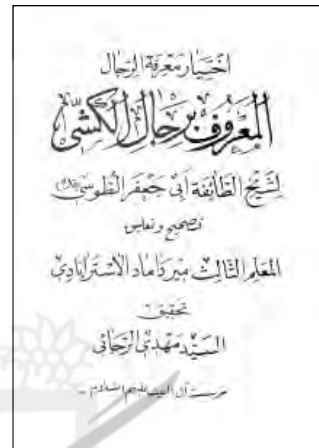 اختيار معرفة الرجال
المعروف برجال الكشي
لشيخ الطائفة ابي جعفر الطوسي
تصحيح و تعليق
المعلم الثالث ميرداماد الاسترابادي
تحقيق
السيد مهدي الرجائي
مؤسسة آل البيت عليهم السلام